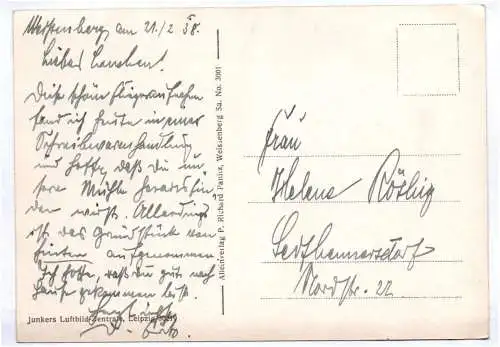 Weissenberg am 21./2 38.
Liebes Lenchen!
Diese schöne Fliegeraufnahme
fand ich heute in einer
Schreibwarenhandlung
und hoffe, daß du un-
sere Mühle herausfin-
den wirst. Allerdings
ist das Grundstück von
hinten aufgenommen
Ich hoffe, daß du gut nach
Hause gekommen bist.
Junkers Luftbild-Zentrale, Leipzig
Alleinverlag P. Richard Panitz, Weissenberg Sa. No. 3001
Frau
Helene Rößig
Seifhennersdorf
Nordstr. 22